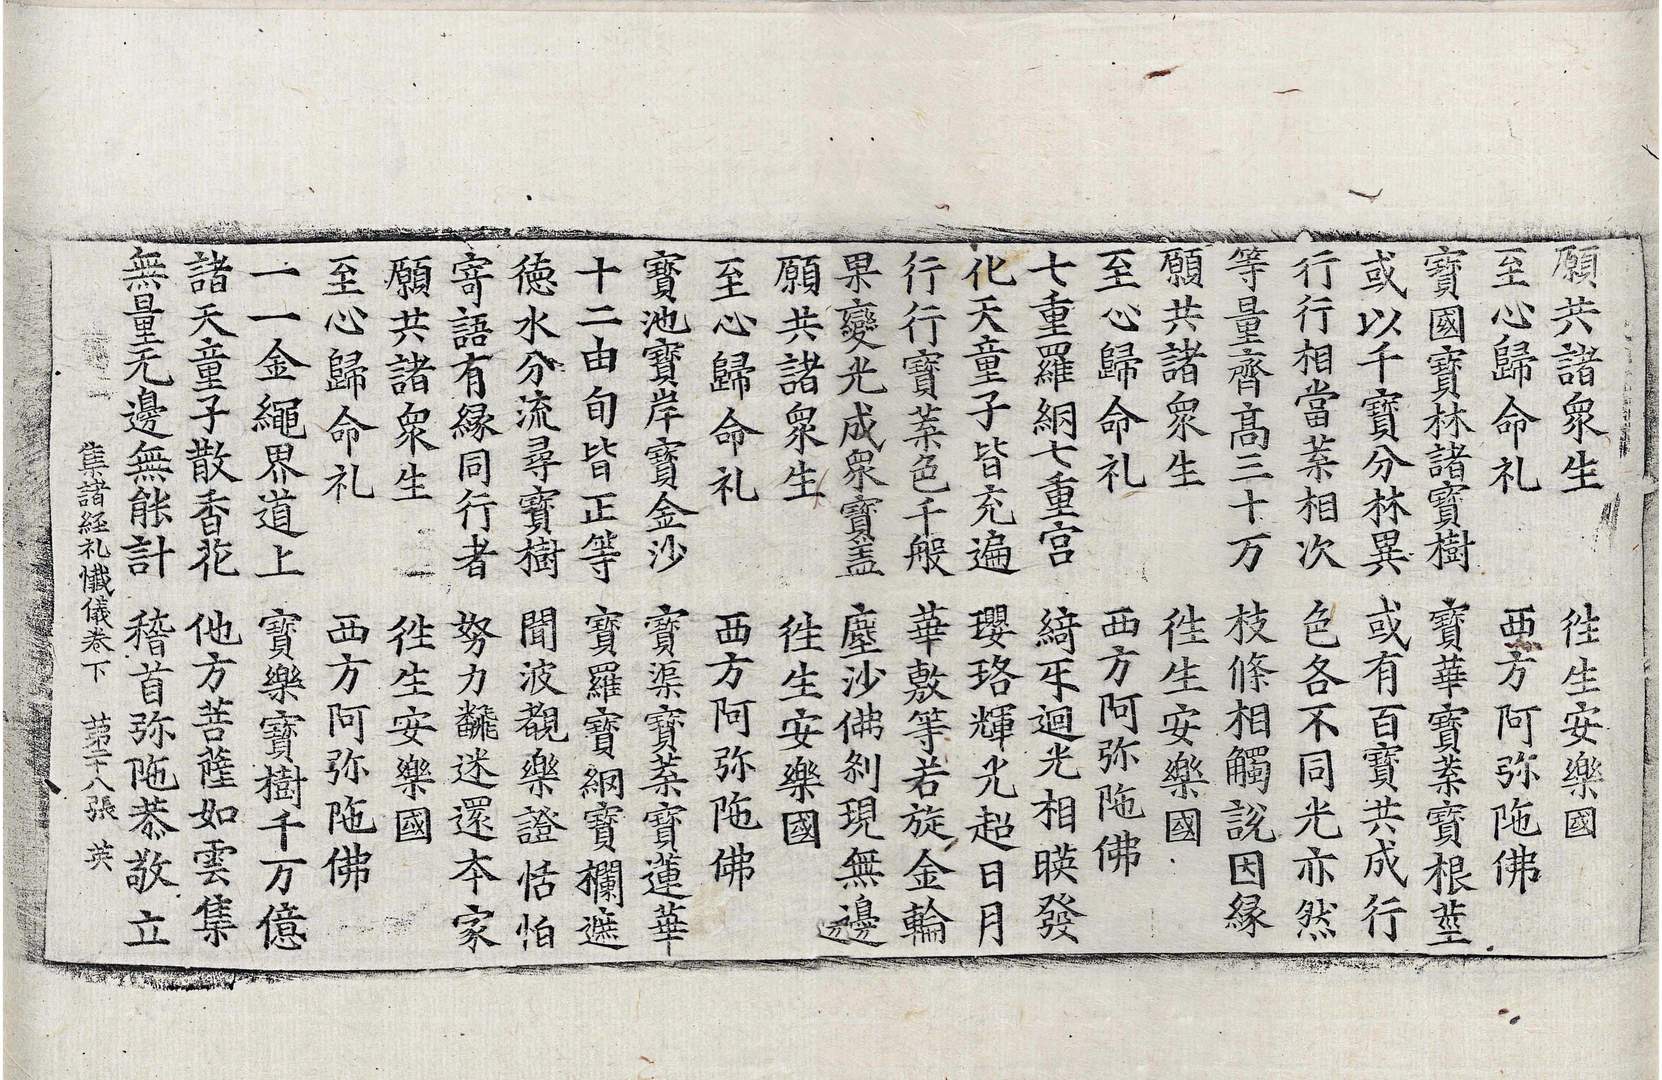 願共諸衆生　徃生安樂國
至心歸命礼　西方阿弥陁佛
寶國寶林諸寶樹　寶華寶葉寶根莖
或以千寶分林異　或有百寶共成行
行行相當葉相次　色各不同光亦然
等量齊髙三十万　枝條相觸說因縁
願共諸衆生　徃生安樂國
至心歸命礼　西方阿弥陁佛
七重羅網七重宫　綺互迴光相暎發
化天童子皆充遍　瓔珞輝光超日月
行行寶葉色千般　華敷等若旋金輪
果變光成衆寶盖　塵沙佛刹現無邊
願共諸衆生　徃生安樂國
至心歸命礼　西方阿弥陁佛
寶池寶岸寶金沙　寶渠寶葉寶蓮華
十二由旬皆正等　寶羅寶網寶欄遮
徳水分流尋寶樹　聞波覩樂證恬怕
寄語有縁同行者　努力飜迷還夲家
願共諸衆生　徃生安樂國
至心歸命礼　西方阿弥陁佛
一一金繩界道上　寶樂寶樹千万億
諸天童子散香花　他方菩薩如雲集
無量无邊無能計　稽首弥陁恭敬立
集諸經礼懺儀卷下　苐二十八張　英